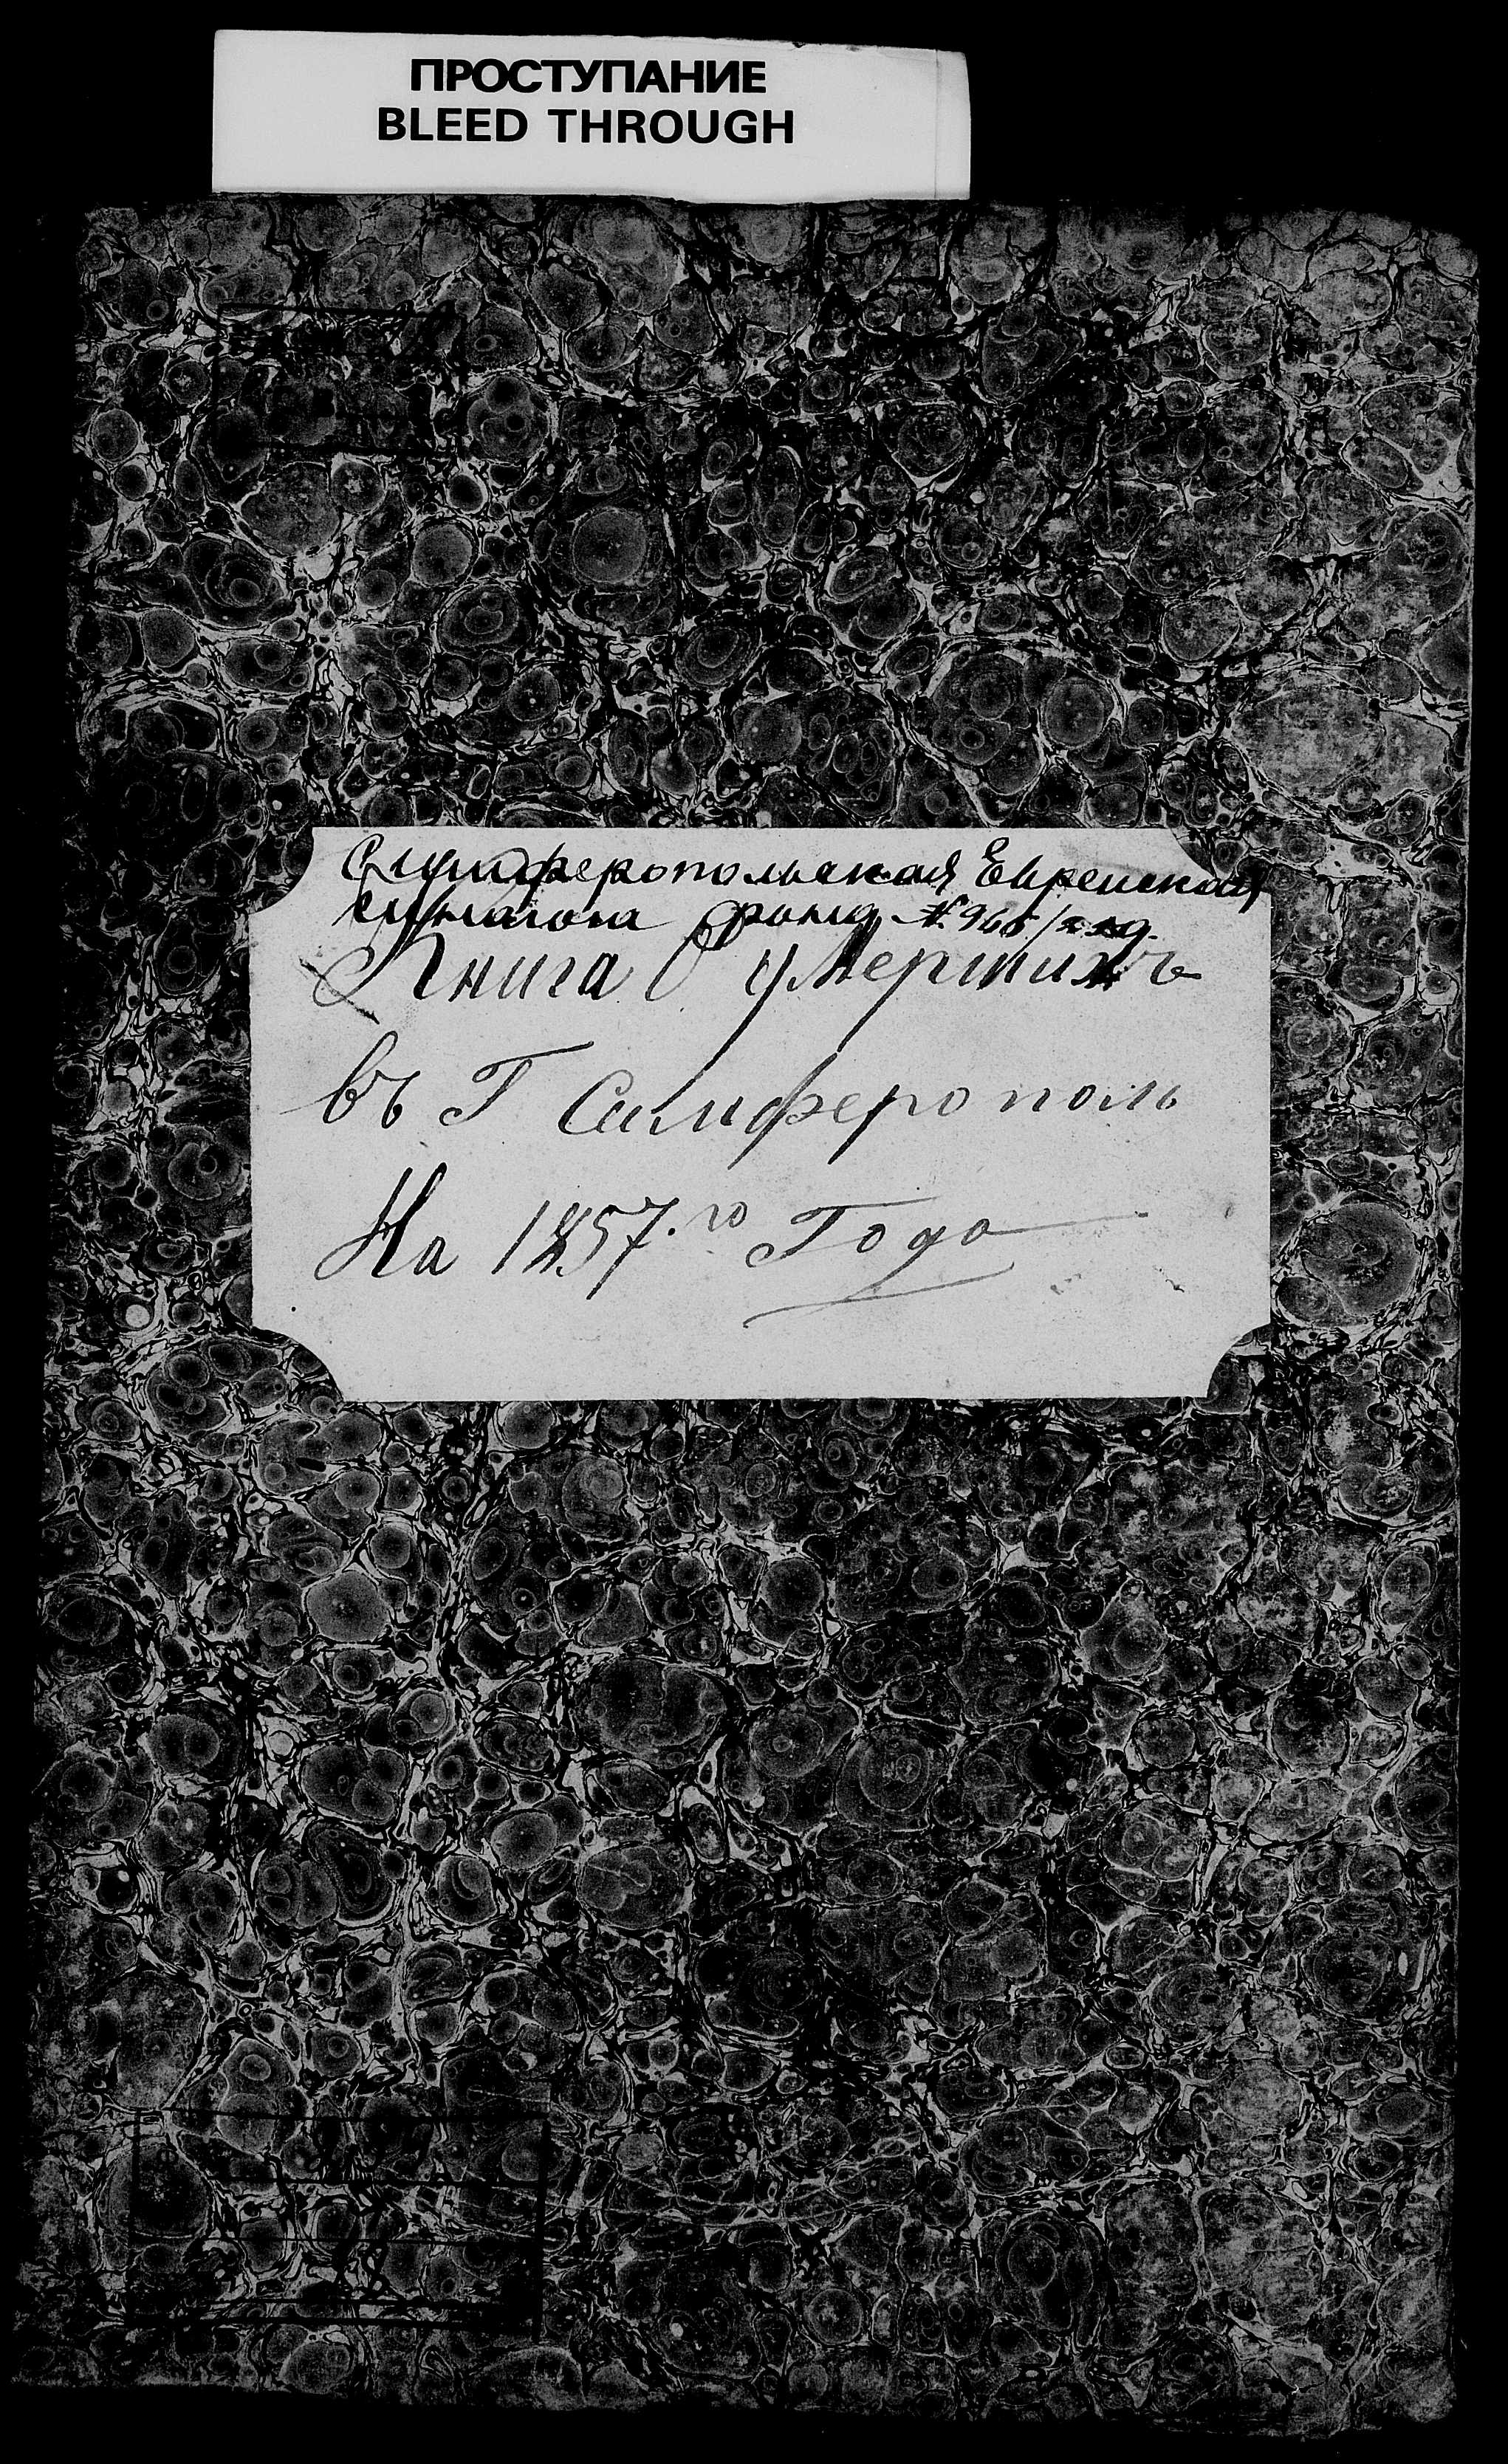 ПРОСТУПАНИЕ
BLEED THROUGH
Симферопольская Еврейская
синагога фонд № 965/
Книга О умерших
въ Г Симферополь
На 1857.го Года